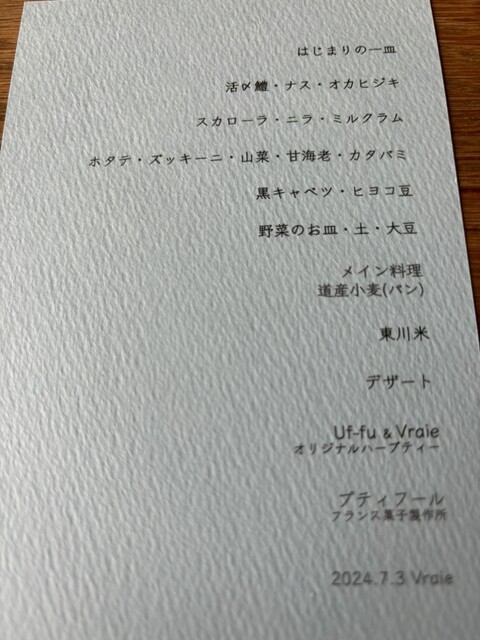 はじまりの一皿
活〆鱧・ナス・オカヒジキ
スカローラ・ニラ・ミルクラム
ホタテ・ズッキーニ・山菜・甘海老・カタバミ
黒キャベツ・ヒヨコ豆
野菜のお皿・土・大豆
メイン料理
道産小麦(パン)
東川米
デザート
Uf-fu & Vraie
オリジナルハーブティー
プティフール
フランス菓子製作所
2024.7.3 Vraie